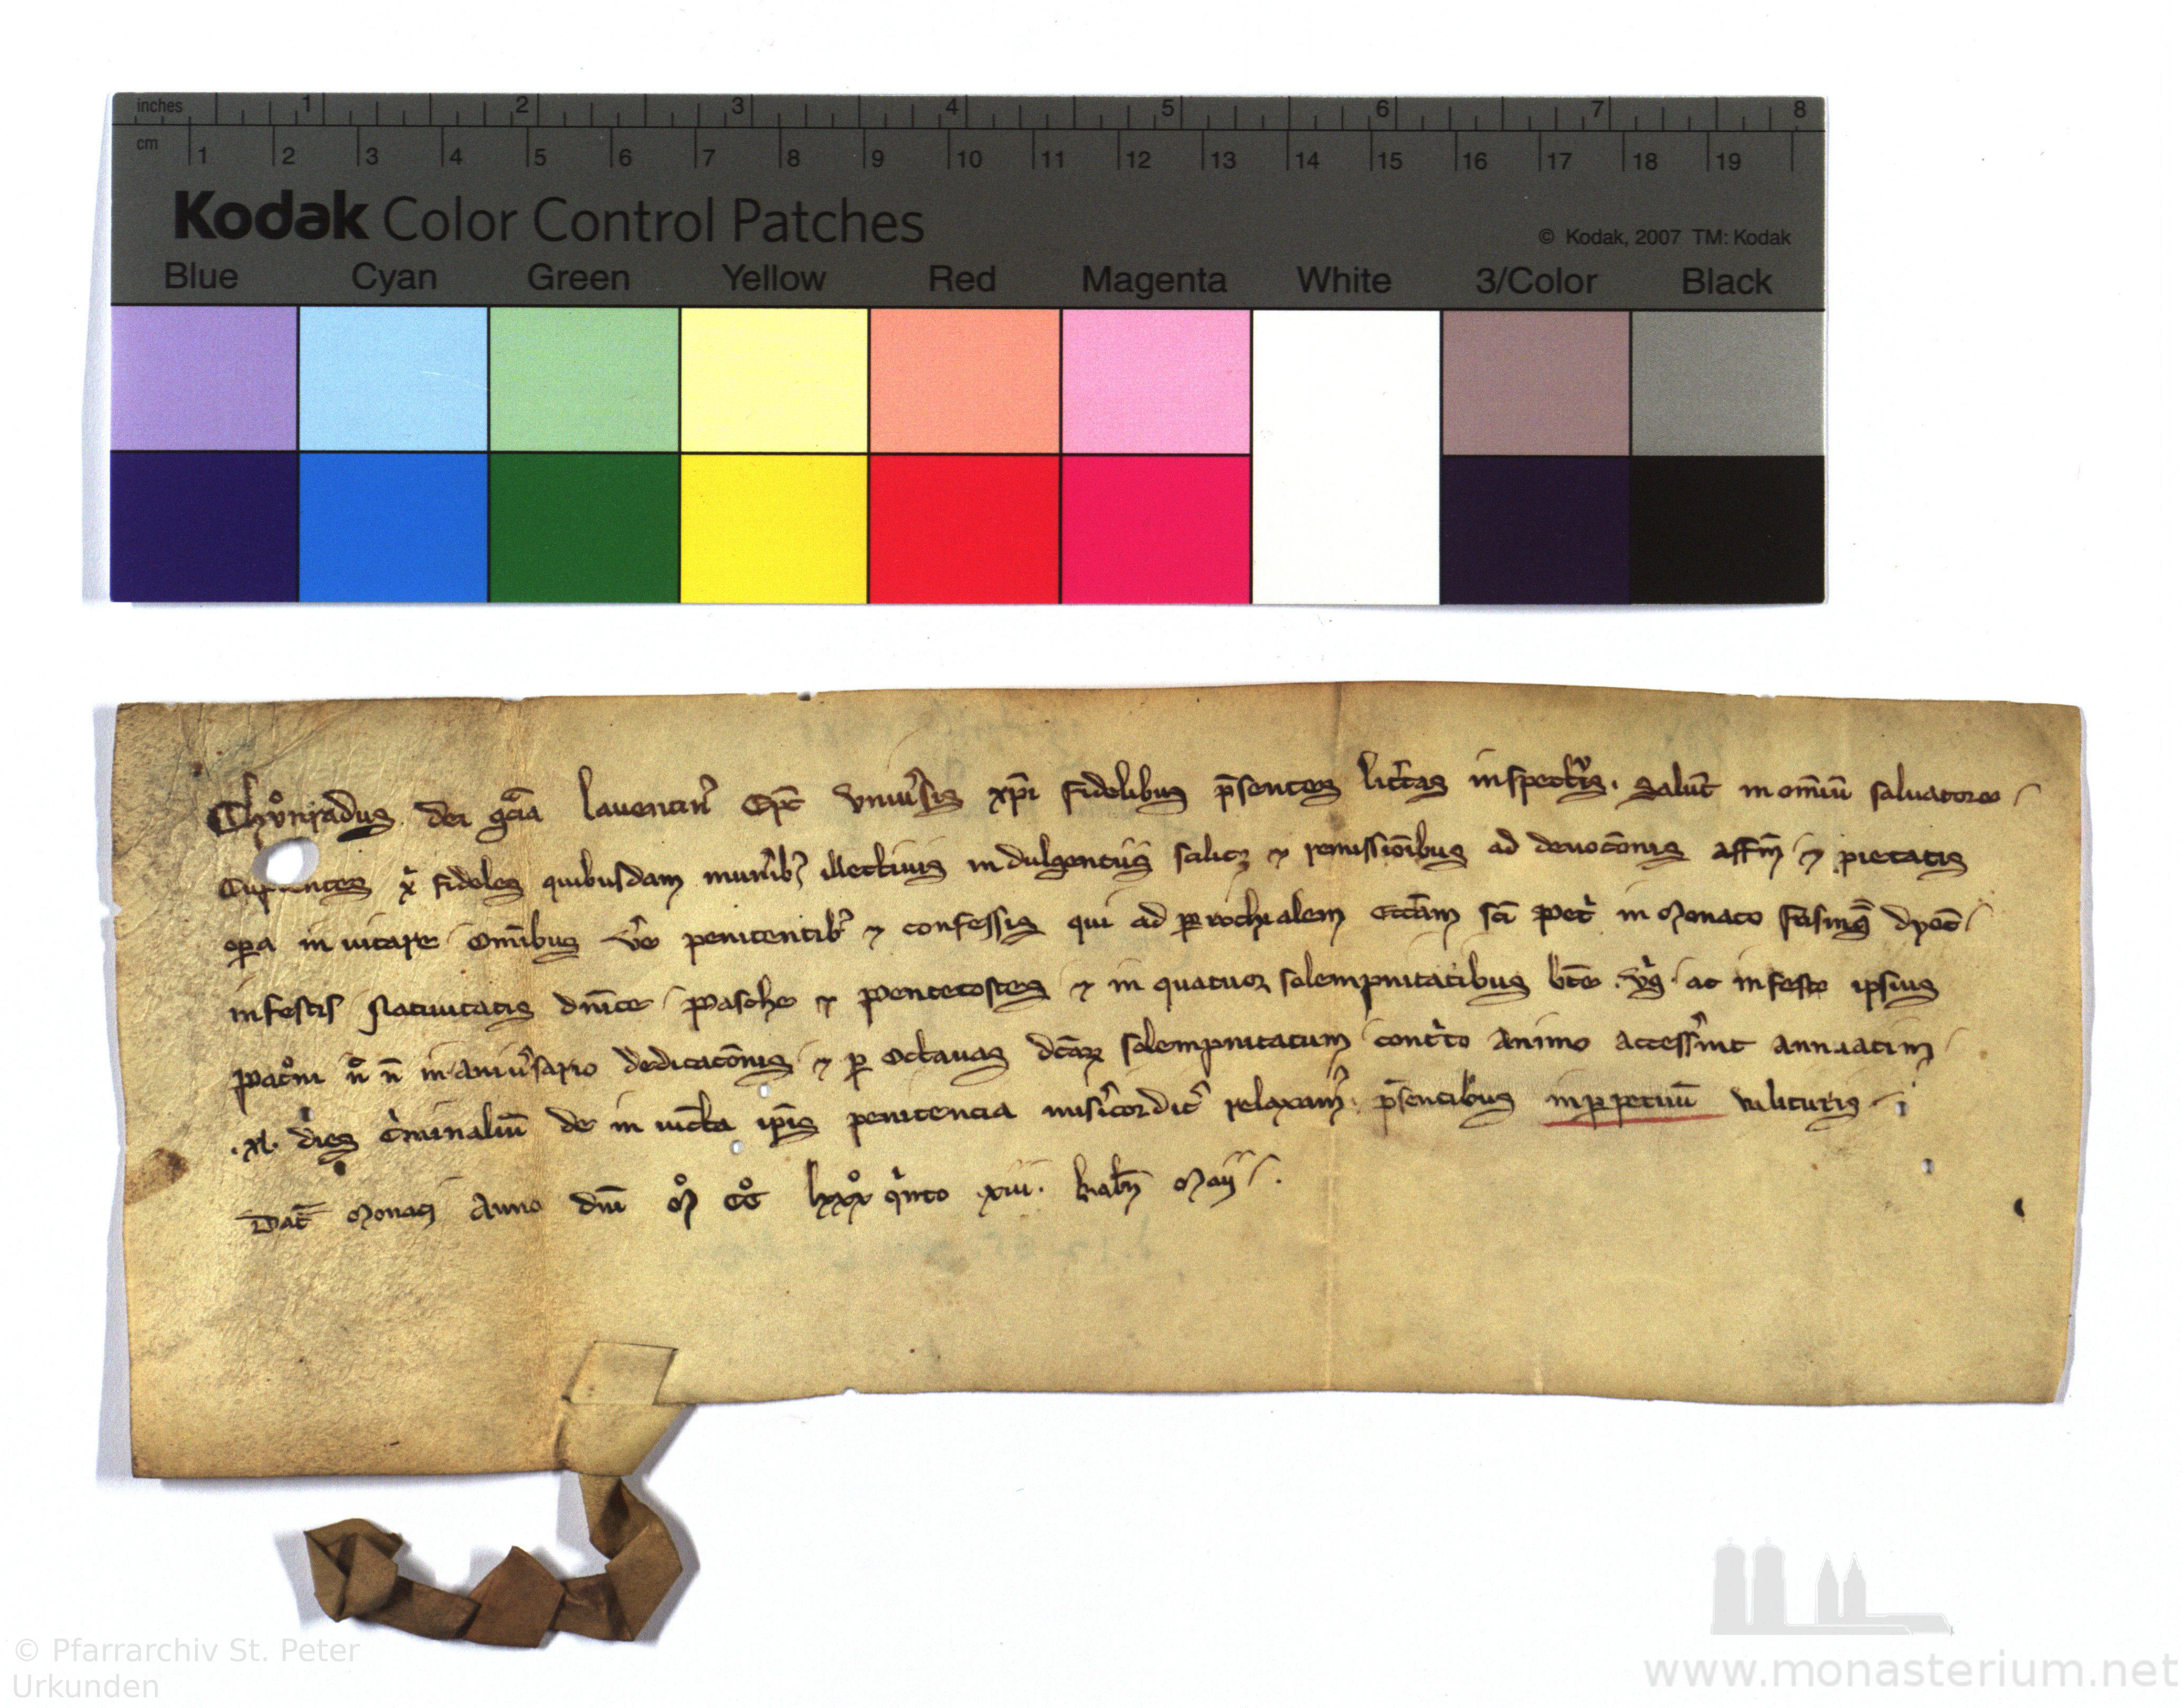 inches 1 2 3 4 5 6 7 8
cm 1 2 3 4 5 6 7 8 9 10 11 12 13 14 15 16 17 18 19
Kodak Color Control Patches
© Kodak, 2007 TM: Kodak
Blue Cyan Green Yellow Red Magenta White 3/Color Black
Chůnradus dei gr̄a lauentin᷒ Ep̄c vniu᷒sis xp̄i fidelibus p̄sentes litt̄as inspectur᷒. salut̄ in om̄iū saluatore /
Cupientes x᷒ fideles quibusdam mun᷒ib᷒ illectiuis indulgentiis scilicȝ ⁊ remissiōibus ad deuoc̄onis affm̄ / ⁊ pietatis
opa inuitare / Om̄ibus v᷒e penitentib᷒ ⁊ confessis qui ad parrochialem eccl̄am sc̄i Pet᷒ in Monaco frisinḡ dyoc̄ /
in festis Natiuitatis dn̄ice / Pasche ⁊ Pentecostes ⁊ in quatuor solempnitatibus bt̄e v᷒g᷒ / ac in festo ipsius
Patōni n̊ n̄ in aniu᷒sario dedicac̄onis / ⁊ p octauas dc̄arȝ solempnitatum / cont᷒to animo access᷒int annuatim /
.xl. dies c᷒minaliū de iniūcta ip̄is penitencia mis᷒icordit᷒ relaxam᷒. p̄sentibus inppetuū valituris /
Dat̄ Monaci Anno dn̄i M̊ CC̊ lxxx̊ q᷒nto xiii. kal̄n Maij / .
© Pfarrarchiv St. Peter
Urkunden
www.monasterium.net